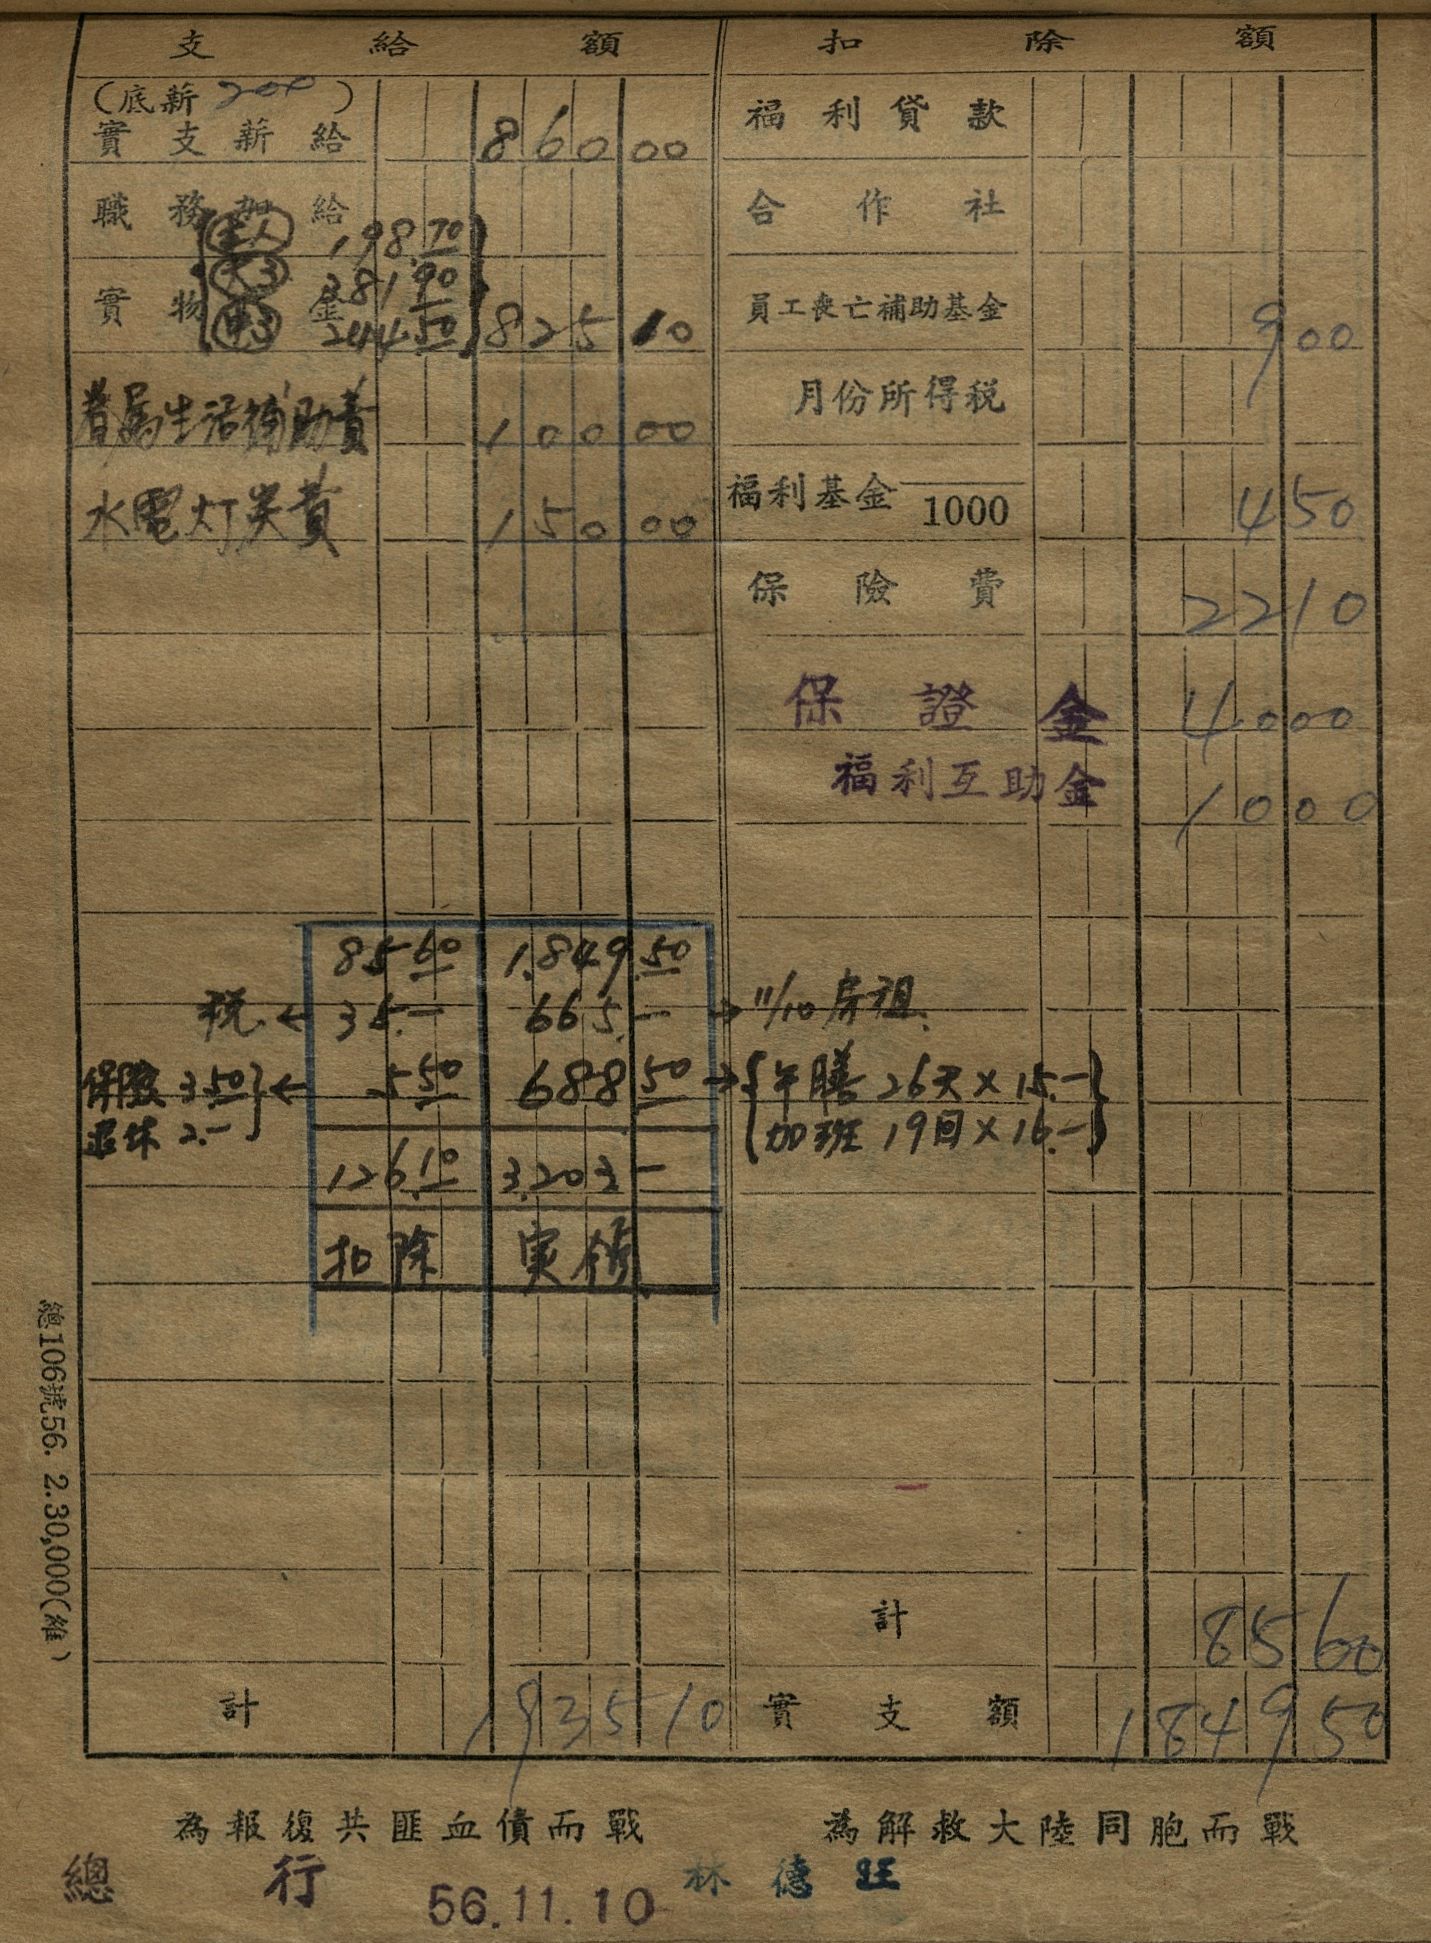 支給額
(底薪 200)
實支薪給 860 00
職務加給
本人 198.70
大3 381.90
實物金 825 10
中3 244.50
眷屬生活補助費 100 00
水電灯炭費 150 00
85.60 1,849.50
税 ← 35.— 665.— → 11/10 房租.
保險 3.50 ← 5.50 688.50 → 午膳 26天×15.—
退休 2.— 加班 19回×16.—
126.10 3,203 —
扣除 実領
計 1935 10
扣除額
福利貸款
合作社
員工喪亡補助基金 9 00
月份所得税
福利基金 1000 4 50
保險費 22 10
保證金 40 00
福利互助金 10 00
計 85 60
實支額 1849 50
總106號56. 2.30,000(維)
為報復共匪血債而戰 為解救大陸同胞而戰
總行 56.11.10 林德旺